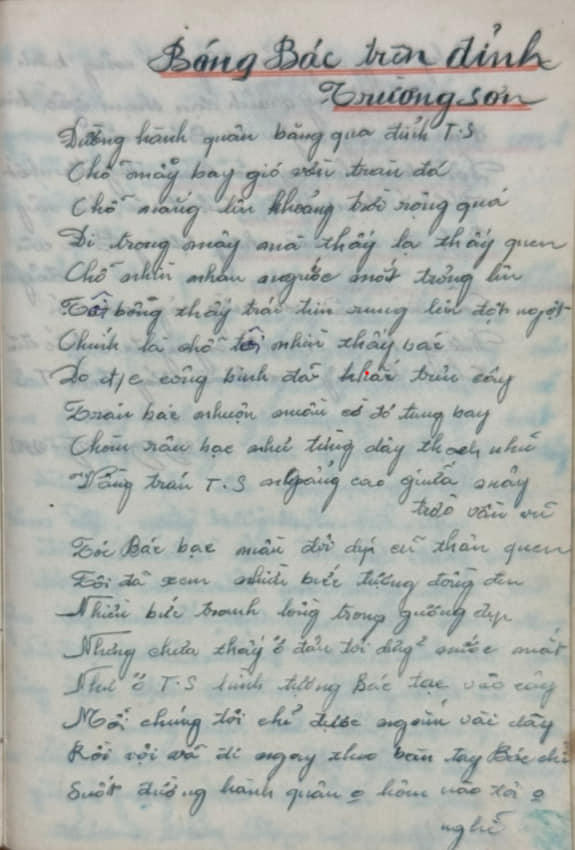 Bóng Bác trên đỉnh
Trường sơn
Đường hành quân băng qua đỉnh T.S
Chỗ mây bay gió vờn trán đá
Chỗ nắng lên khoảng trời rộng quá
Đi trong mây mà thấy lạ thấy quen
Chỗ nhìn nhau người mắt trông lên
Tôi bỗng thấy trái tim rung lên đột ngột
Chính là chỗ tôi nhìn thấy bác
Do đ/c công binh đã khắc trên cây
Trán bác nhuộm màu cờ đỏ tung bay
Chòm râu bạc như từng dây thạch nhũ
Vầng trán T.S ngẩng cao giữa mây
trời vần vũ
Tóc Bác bạc màu đôi dép cũ thân quen
Tôi đã xem nhiều bức tượng đồng đen
Nhiều bức tranh lồng trong gương đẹp
Nhưng chưa thấy ở đâu tôi nước mắt
Như ở T.S hình tượng Bác tạc vào cây
Mỗi chúng tôi chỉ được ngắm vài dây
Rồi vội vã đi ngay theo bàn tay Bác chỉ
Suốt đường hành quân o hôm nào tôi o
nghĩ